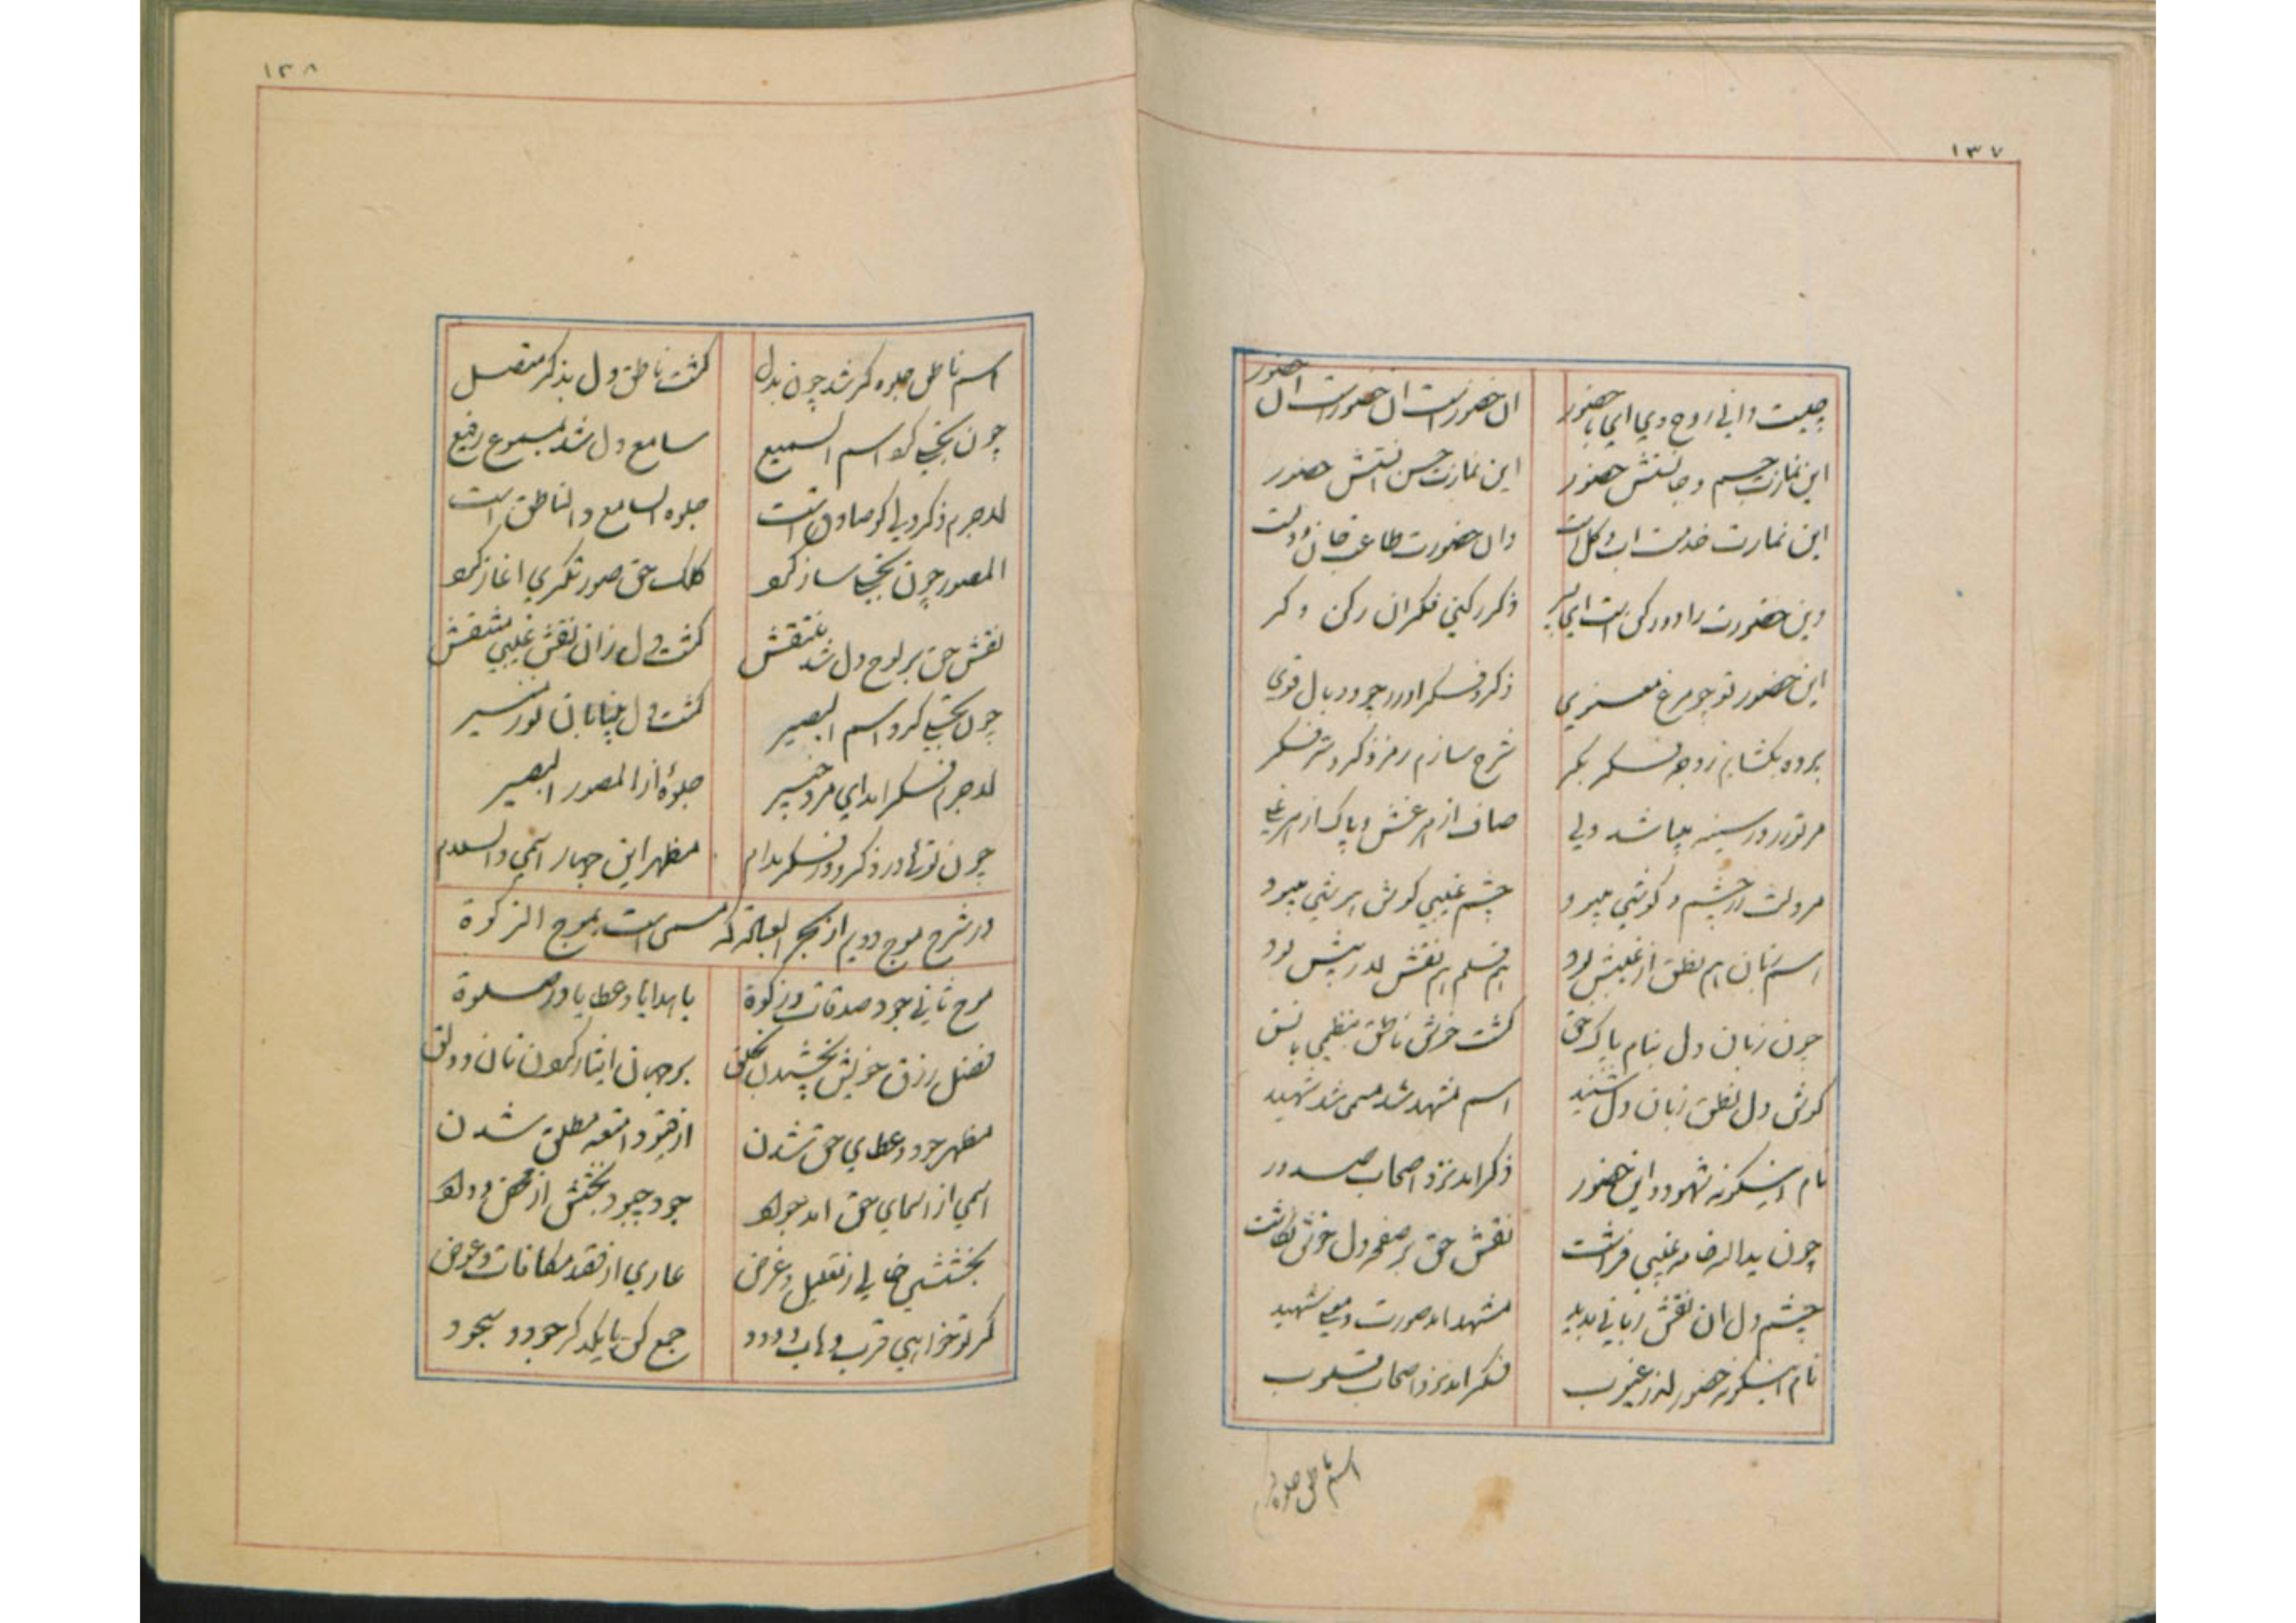 ۱۳۷
چیست دانی روح وی ای با حضور ان حضورست ان حضورست ان حضور
این نمازت جسم و جانستش حضور این نمازت حسن استش حضور
این نمازت خدمت اب و کل است وان حضورت طاعت جان و دلست
وین حضورت را دو رکن است ای پسر ذکر رکنی فکر ان رکن دکر
این حضور تو چو مرغ معنوی ذکر و فکر اورد چو دو بال قوی
پرده بکشایم ز وجه فکر بکر شرح سازم رمز ذکر و سر فکر
مر تو را در سینه میباشد دلی صاف از هر غش و پاک از هر غلی
مر دلت را چشم و کوشی میبود چشم غیبی کوش هر بیتی میبود
هستش زبان هم نطق از غیبش بود هم قلم هم نقش لاریبش بود
چون زبان دل بنام پاک حق کشت خوش ناطق بنظمی بانسق
کوش دل نطق زبان دل شنید اسم مشهد شد مسمی شد شهید
نام اینکونه شهود و این حضور ذکر امد نزد اصحاب صدور
چون ید الله خامه غیبی فراشت نقش حق بر صفحه دل خوش نکاشت
چشم دل ان نقش ربانی بدید مشهد امد صورت و معنی شهید
نام اینکونه حضور از غیوب فکر امد نزد اصحاب قلوب
اسم ناطق جلوه کر
۱۳۸
اسم ناطق جلوه کر شد چون بدل کشت ناطق دل بذکر متصل
چون تجلی کرد اسم السمیع سامع دل شد بمسموع رفیع
لاجرم ذکر دلی کر صادق است جلوه السامع و الناطق است
المصور چون تجلی ساز کرد کلک حق صورتکری اغاز کرد
نقش حق بر لوح دل شد منتقش کشت دل زان نقش غیبی منتقش
چون تجلی کرد اسم البصیر کشت دل بینا بان نور منیر
لاجرم فکر امد ای مرد خبیر جلوهٔ از المصور البصیر
چون تو را در ذکر و در فکر مدام مظهر این چهار اسمی والسلام
در شرح موج دویم از بحر العباده که مسمی است بموج الزکوة
موج ثانی جود صدقات و زکوة با هدایا و عطایا و صلوة
فضل رزق خویش بخشیدن بخلق بر جهان ایثار کردن نان و دلق
مظهر جود و عطای حق شدن از قیود امتعه مطلق شدن
اسمی از اسمای حق امد جواد جود چبود بخشش از محض وداد
بخششی خالی ز تعلیل و غرض عاری از قصد مکافات و عوض
کر تو خواهی قرب وهاب ودود جمع کن با یکدکر جود و سجود